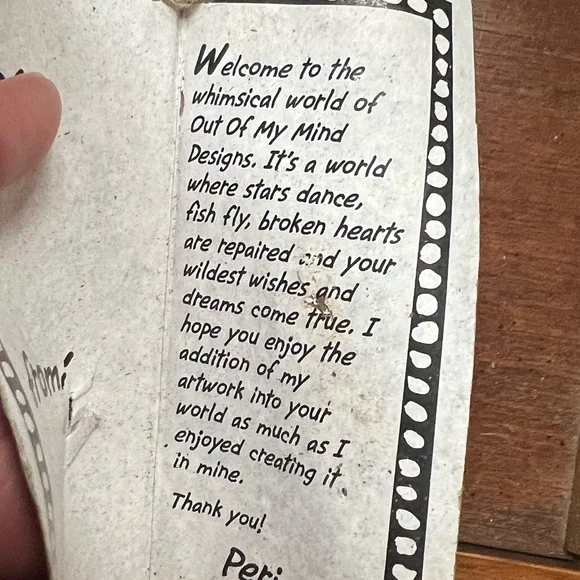 Welcome to the
whimsical world of
Out Of My Mind
Designs. It's a world
where stars dance,
fish fly, broken hearts
are repaired and your
wildest wishes and
dreams come true. I
hope you enjoy the
addition of my
artwork into your
world as much as I
enjoyed creating it
in mine.
Thank you!
from: